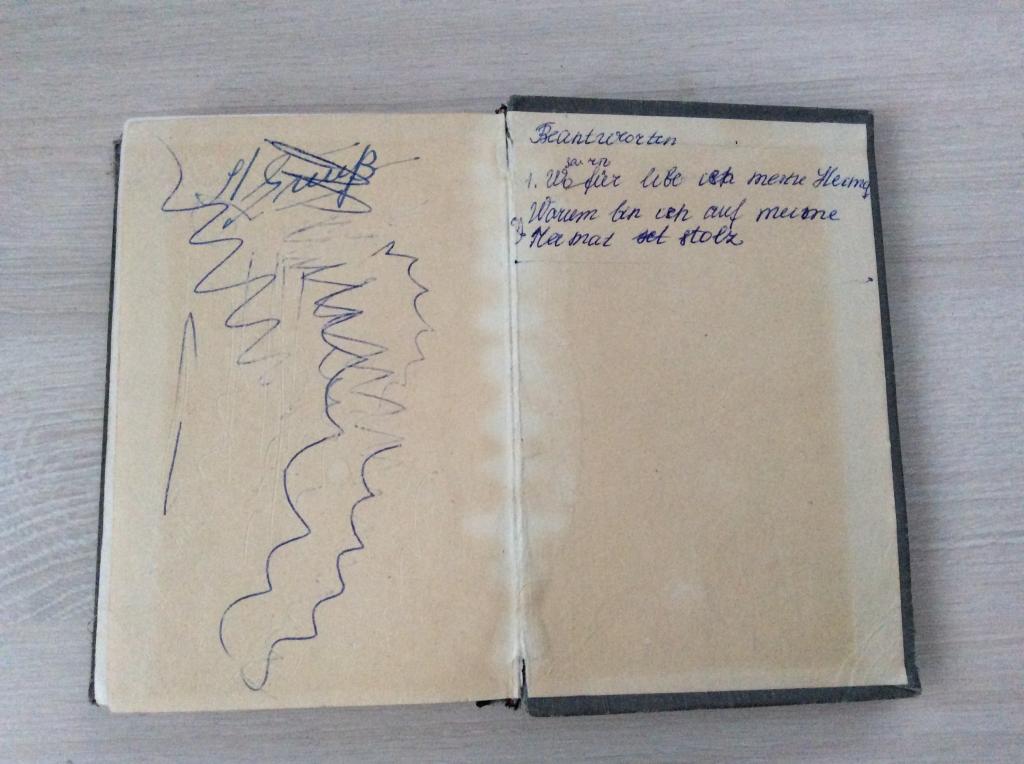 Beantworten
1. Wo für libe ich meine Heimat
Warum bin ich auf meine
Heimat stolz